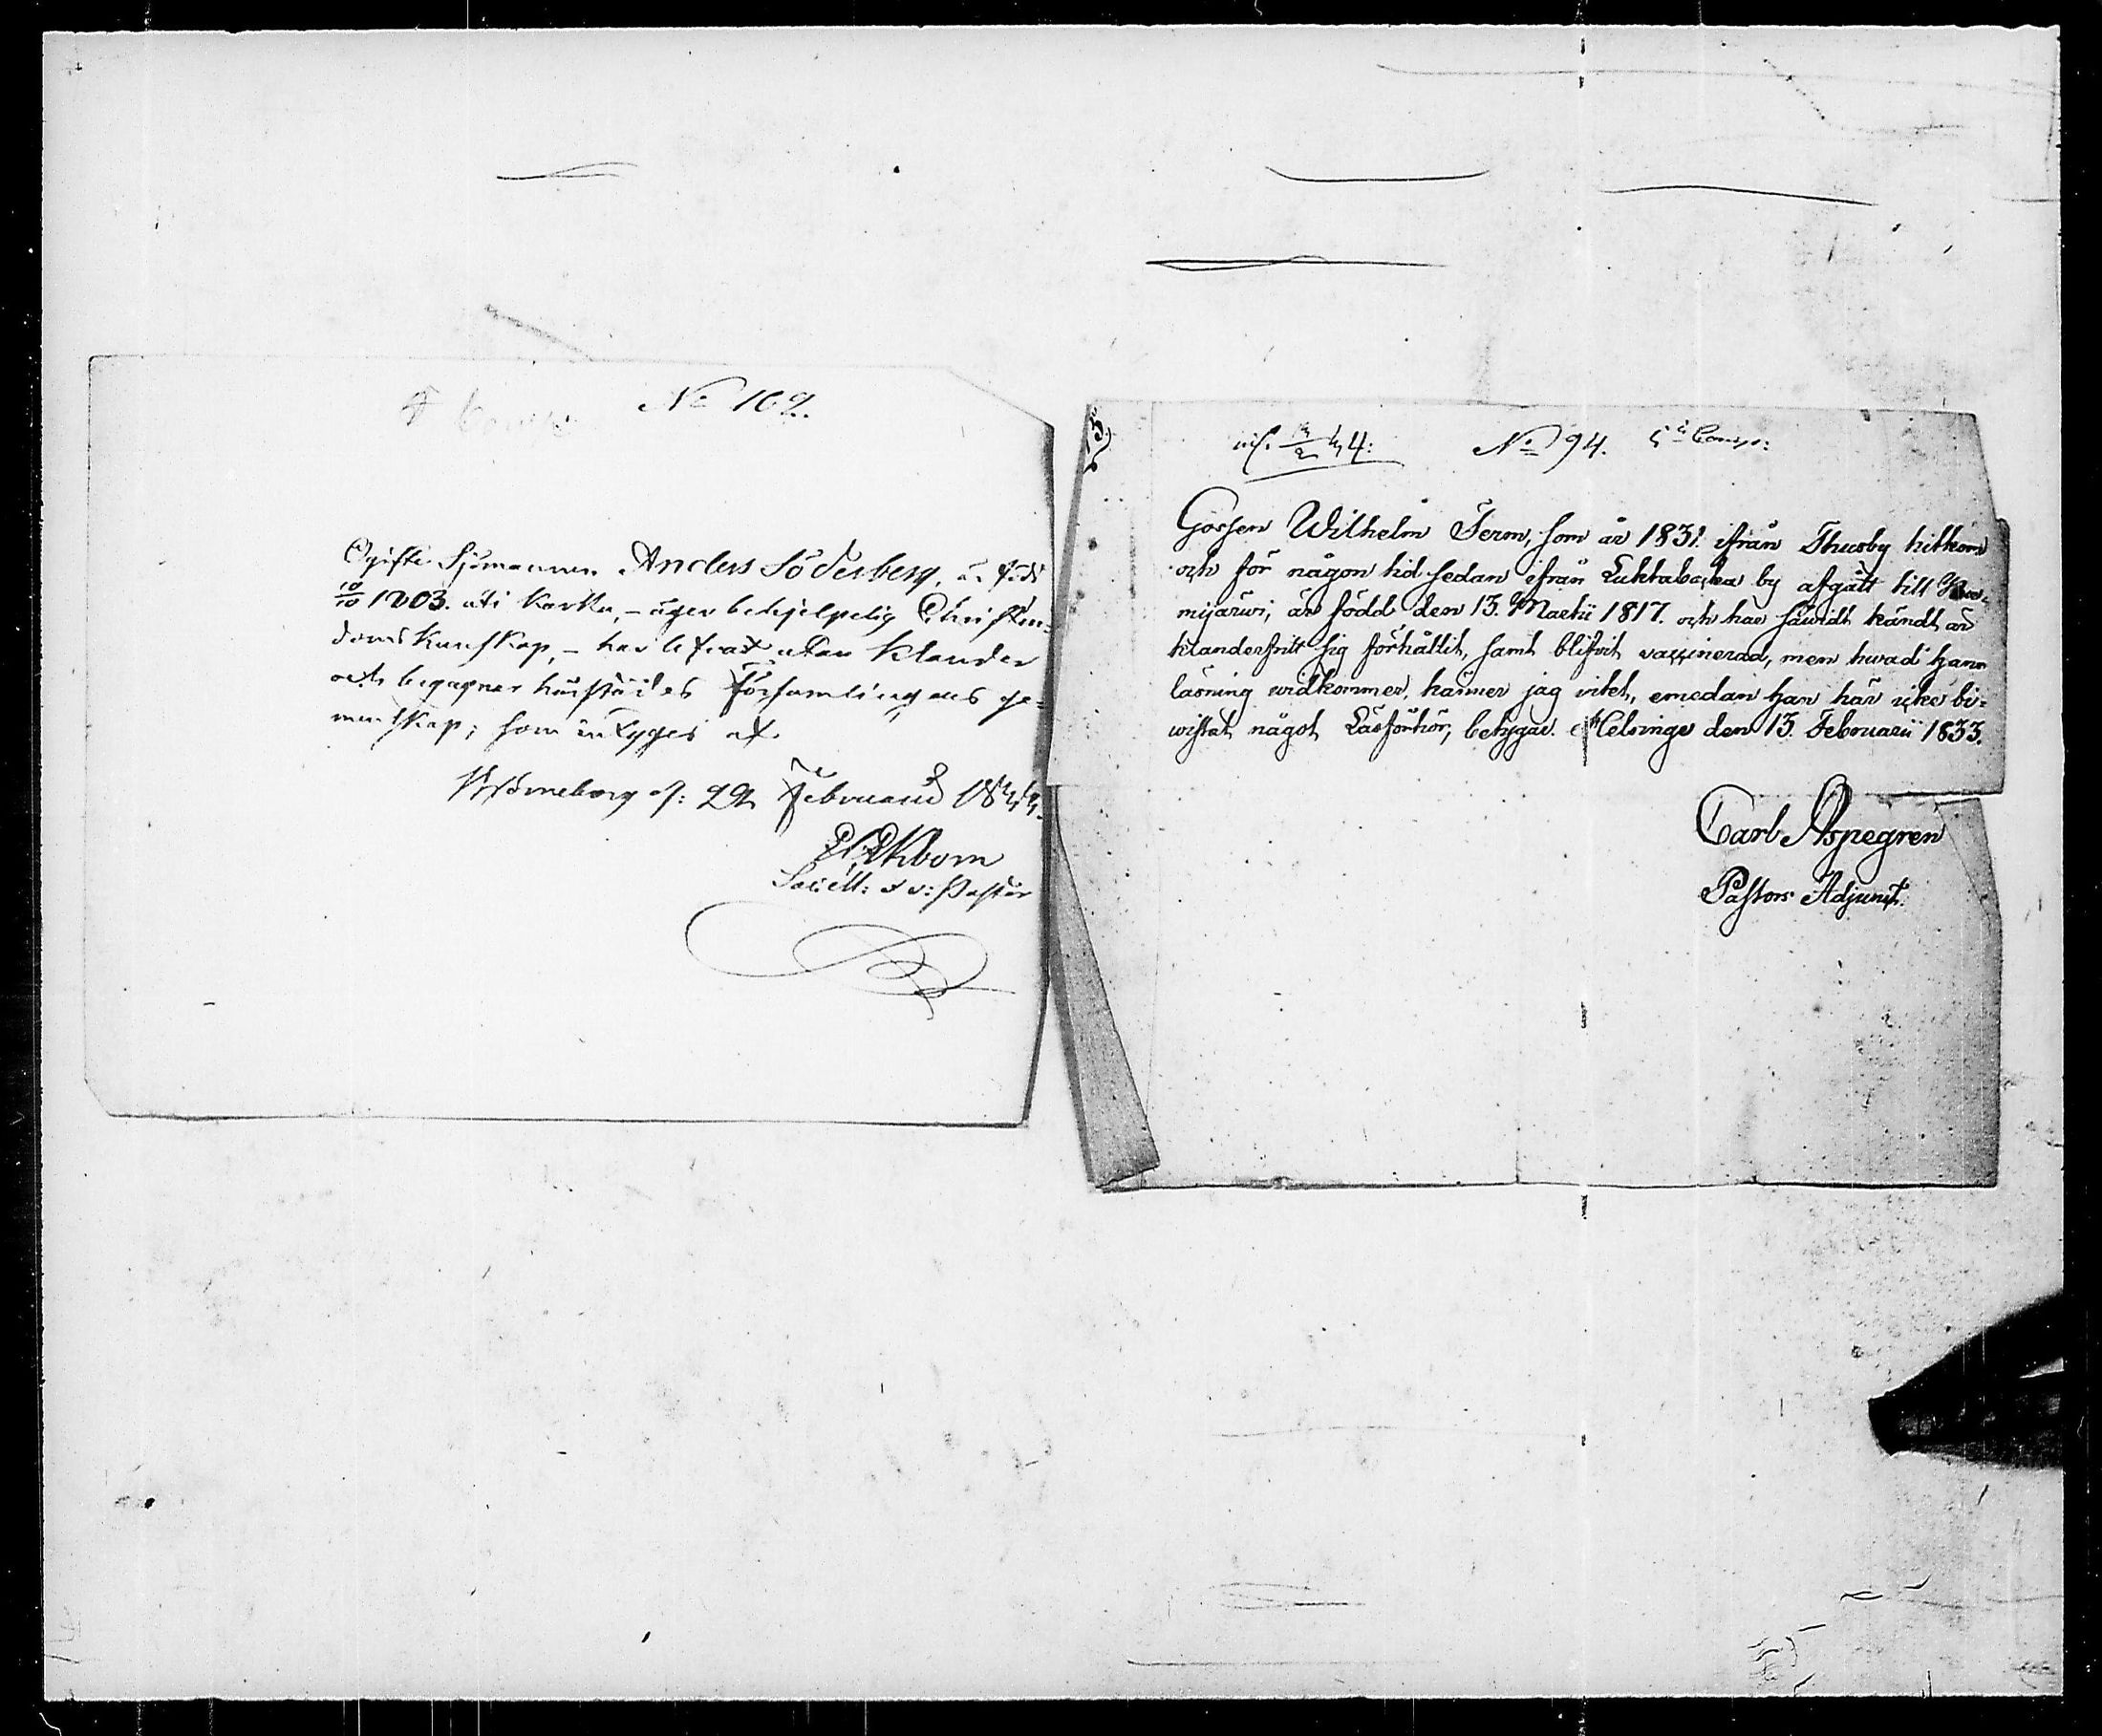 No 102.
Ogifte Sjömannen Anders Söderberg, är född
10/10 1803. uti Karkku, – äger behjelpelig Christen-
doms kunskap, – har lefvat utan klander
och begagnar härstädes församlingens ge-
menskap; som intygas af.
Björneborg d: 22 Februarii 1844.
Ekbom
Sacell: v: Pastor
inf. 3/2 44: No 94. 5te Comp:
Gossen Wilhelm Ferm, som år 1831. ifrån Thusby hitkom
och för någon tid sedan ifrån Luktabacka by afgått till
mijärwi, är född den 13. Martii 1817. och har såvidt kändt är
klanderfritt sig förhållit, samt blifvit vaccinerad, men hwad hans
läsning widkommer, känner jag intet, emedan han här icke bi-
wistat något Läsförhör; betygar. Helsinge den 13. Februarii 1833.
Carl Aspegren
Pastors Adjunct.